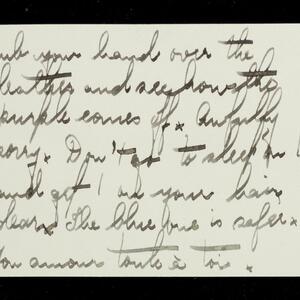 rub your hand over the
leather and see how the
purple comes off. Awfully
sorry. Don't go to sleep in
and get / on your hair
dear. The blue one is safer.
Ton amour toute à toi.